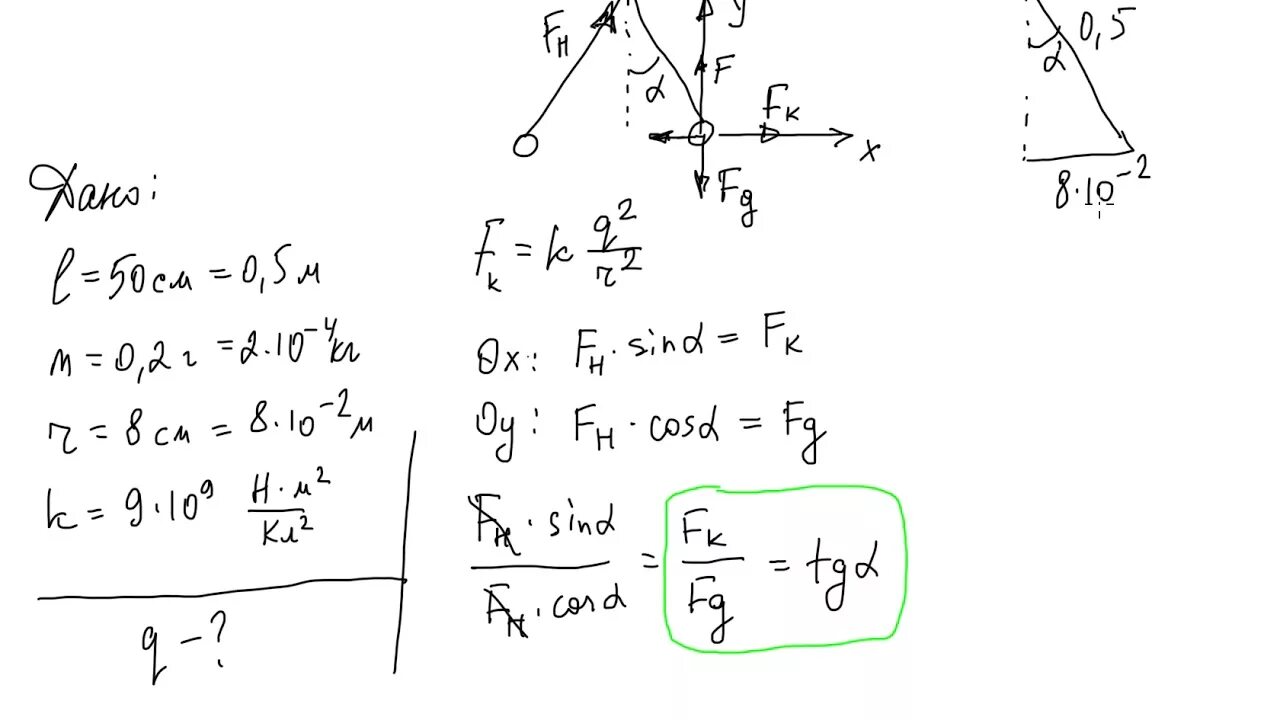 Fн
α
y
F
Fк
x
Fg
α
0,5
8·10⁻²
Дано:
l = 50 см = 0,5 м
m = 0,2 г = 2·10⁻⁴ кг
r = 8 см = 8·10⁻² м
k = 9·10⁹ Н·м²/Кл²
q - ?
Fк = k q²/r²
Ox: Fн · sinα = Fк
Oy: Fн · cosα = Fg
Fн · sinα / Fн · cosα = Fк / Fg = tgα